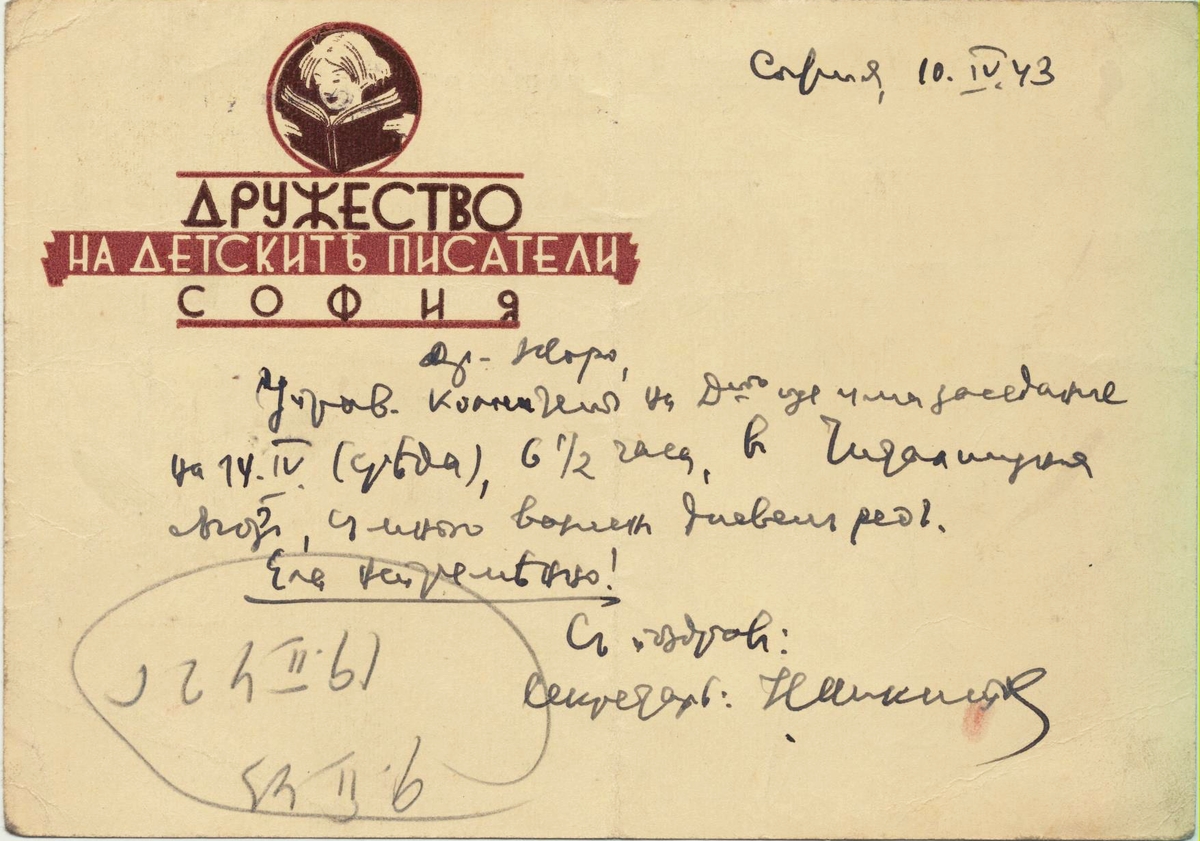 София, 10. IV. 43
ДРУЖЕСТВО
НА ДЕТСКИТѢ ПИСАТЕЛИ
СОФИЯ
Др. Жоро,
Управ. Комитетъ на Д-вото ще има заседание
на 14. IV. (срѣда), 6 1/2 часа, в
, и много важен дневен редъ.
Ела непремѣнно!
Съ поздрав:
Секретарь:
19. II 42 г
9. II 43